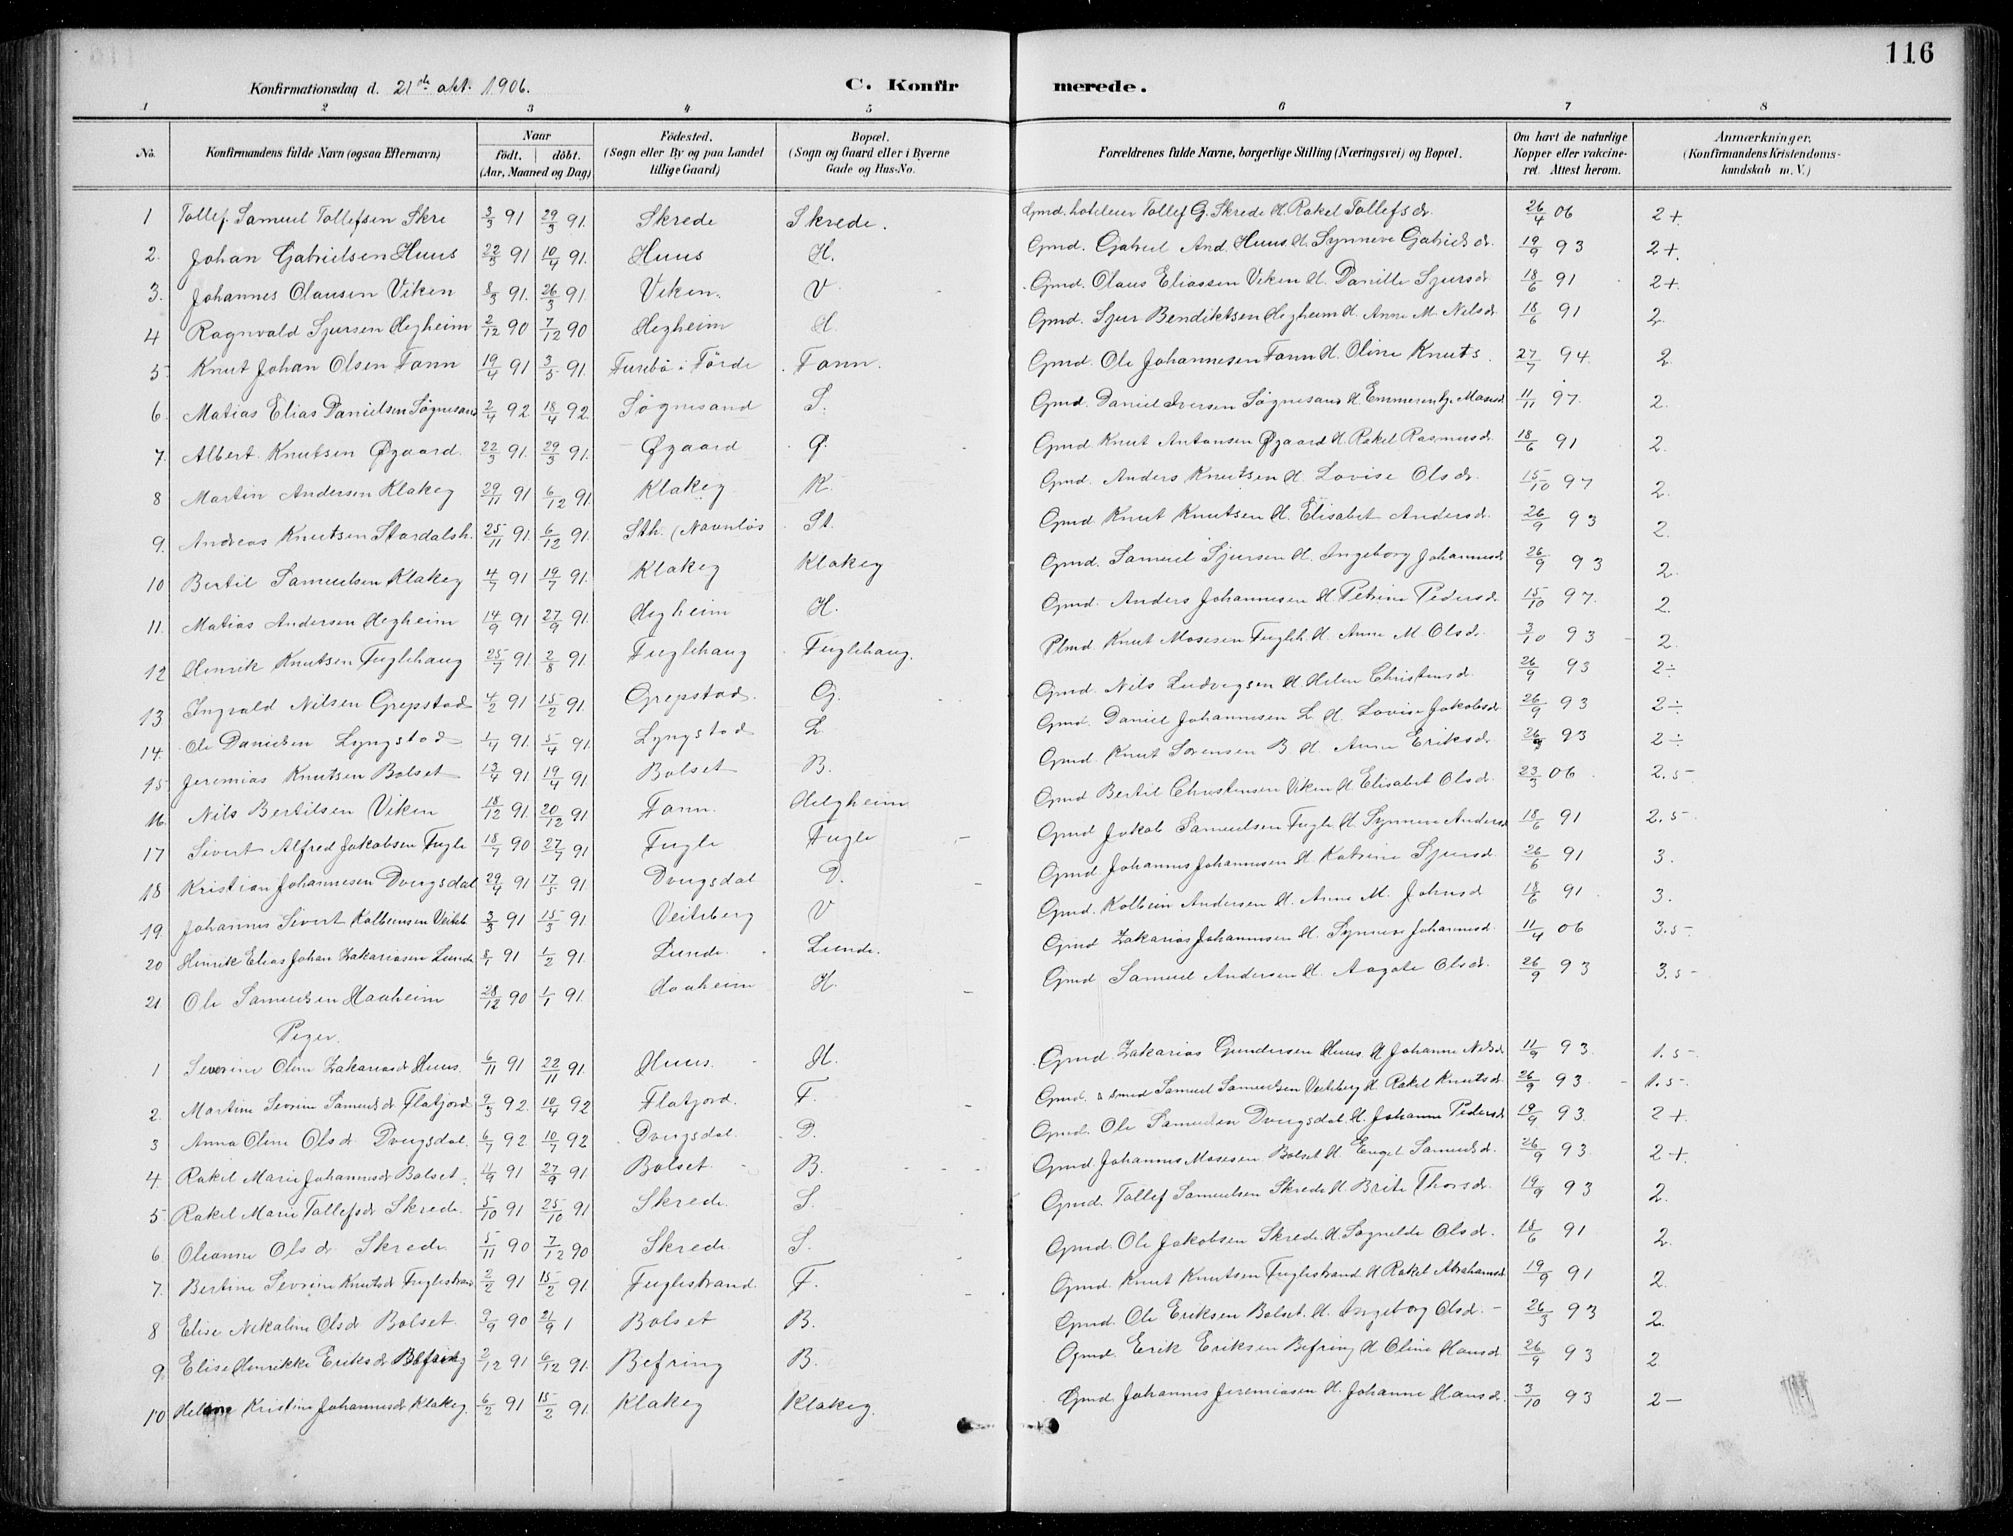 116
Konfirmationsdag d. 21de okt. 1906. C. Konfirmerede.
1 2 3 4 5 6 7 8
No. Konfirmandens fulde Navn (ogsaa Efternavn) Naar födt, döbt. (Aar, Maaned og Dag) Födested. (Sogn eller By og paa Landet tillige Gaard) Bopæl. (Sogn og Gaard eller i Byerne Gade og Hus-No. Forældrenes fulde Navne, borgerlige Stilling (Næringsvei) og Bopæl. Om havt de naturlige Kopper eller vakcineret. Attest herom. Anmærkninger. (Konfirmandens Kristendomskundskab m. V.)
1 Tollef Samuel Tollefsen Skre 3/3 91 29/3 91. Skrede Skrede. Gmd. hoteleier Tollef G. Skrede H. Rakel Tollefsdr. 26/4 06 2+
2. Johan Gabrielsen Huus 22/3 91 10/4 91. Huus H. Gmd. Gabriel And. Huus H. Synneve Gabrielsdr. 19/9 93 2+.
3. Johannes Olausen Viken 8/3 91. 26/3 91. Viken. V Gmd. Olaus Eliassen Viken H. Danille Sjursdr. 18/6 91 2+.
4 Ragnvald Sjursen Hegheim 2/12 90 7/12 90 Hegheim H. Gmd. Sjur Bendiktsen Hegheim H. Anne M. Nilsdr. 18/6 91 2.
5 Knut Johan Olsen Fonn 19/4 91 3/5 91. Furebø i Førde Fonn. Gmd. Ole Johannesen Fonn H. Oline Knuts. 27/7 94. 2.
6. Matias Elias Danielsen Søgnesand 2/4 92. 18/4 92. Søgnesand S. Gmd. Daniel Iversen Søgnesand H. Emmerentze Mosesd. 11/11 97. 2.
7. Albert Knutsen Øgaard. 22/3 91. 29/3 91. Øgaard Ø. Gmd Knut Antonsen Øgaard H. Rakel Rasmusdr. 18/6 91 2.
8 Martin Andersen Klakeg 29/11 91 6/12 91. Klakeg K. Gmd. Anders Knutsen H. Lovise Olsdr. 15/10 97 2.
9. Andreas Knutsen Stardalsh. 25/11 91. 6/12 91. Sth. (Navnløs St. Gmd. Knut Knutsen H. Elisabet Andersdr. 26/9 93 2.
10 Bertil Samuelsen Klakeg 4/7 91 19/7 91. Klakeg Klakeg Gmd. Samuel Sjursen H. Ingeborg Johannesdr 26/9 93 2.
11. Matias Andersen Hegheim 14/9 91 27/9 91. Hegheim H. Gmd. Anders Johannesen H. Petrine Pedersdr 15/10 97. 2.
12 Henrik Knutsen Fuglehaug 25/7 91 2/8 91. Fuglehaug Fuglehaug. Plmd. Knut Mosesen Fugleh. H. Anne M. Olsdr. 3/10 93 2.
13 Ingvald Nilsen Grepstad 4/2 91 15/2 91. Grepstad. G. Gmd. Nils Ludvigsen H. Helene Christensd. 26/9 93 2÷
14. Ole Danielsen Lyngstad 1/4 91. 5/4 91. Lyngstad L Gmd. Daniel Johannesen L. H. Lovise Jakobsdr 26/9 93 2÷
15 Jeremias Knutsen Bolset 13/4 91 19/4 91 Bolset B. Gmd. Knut Sørensen B. H. Anne Eriksdr 26/9 93 2÷
16. Nils Bertilsen Viken 18/12 91. 20/12 91 Fonn. Helgheim Gmd Bertil Christensen Viken H Elisabet Olsdr. 23/3 06 2.5
17 Sivert Alfred Jakobsen Fugle 18/7 90 27/7 91 Fugle Fugle Gmd Jakob Samuelsen Fugle H. Synneve Andersd 18/6 91 2.5
18 Kristian Johannesen Dvergsdal 29/4 91 17/5 91 Dvergsdal D. Gmd Johannes Johannesen H Katrine Sjursdr. 26/6 91 3.
19. Johannes Sivert Kolbeinsen Veiteb. 3/3 91 15/3 91. Veiteberg V Gmd. Kolbein Andersen H. Anne M. Johnsdr. 18/6 91 3.
20 Henrik Elias Johan Zakariasen Lunde 8/1 91 1/2 91. Lunde. Lunde. Gmd Zakarias Johannesen H. Synneve Johannesd. 11/4 06 3.5
21 Ole Samuelsen Haaheim 28/12 90 1/1 91. Haaheim H. Gmd Samuel Andersen H. Aagate Olsdr. 26/9 93 3.5
Piger.
1 Severine Oline Zakariasdr Huus. 6/11 91 22/11 91. Huus. H. Gmd. Zakarias Gundersen Huus H Johanne Nilsdr 11/9 93. 1.5
2. Martine Sevrine Samuelsdr Flatjord 9/3 92. 10/4 92 Flatjord. F. Gmd. & smed Samuel Samuelsen Veiteberg H. Rakel Knutsdr. 26/9 93. 1.5
3 Anna Oline Olsdr Dvergsdal. 6/7 92. 10/7 92 Dvergsdal. D. Gmd. Ole Samuelsen Dvergsdal. H. Johanne Pedersdr 19/9 93. 2+
4. Rakel Marie Johannesdr Bolset. 4/9 91 27/9 91 Bolset. B. Gmd. Johannes Mosesen Bolset H. Enget Samuelsdr. 26/9 93. 2+.
5 Rakel Marie Tollefsdr Skrede. 5/10 91 25/10 91 Skrede. S. Gmd. Tollef Samuelsen Skrede H. Brite Thorsdr. 19/9 93 2.
6 Oleanne Olsdr Skrede. 5/11 90 7/12 90 Skrede. S. Gmd. Ole Jakobsen Skrede. H. Sognelde Olsdr. 18/6 91 2.
7. Bertine Sevrine Knutsdr Fuglestrand 2/2 91 15/2 91. Fuglestrand. F. Gmd. Knut Knutsen Fuglestrand H Rakel Abrahamsd 19/9 91 2.
8 Elise Nikoline Olsdr Bolset. 9/9 90 21/9 1 Bolset B. Gmd. Ole Eriksen Bolset. H. Ingeborg Olsdr. 26/3 93 2.
9. Elise Henrikke Eriksdr Befring 2/12 91 6/12 91. Befring B. Gmd. Erik Eriksen Befring H Oline Hansdr 26/9 93 2
10 Helene Kristine Johannesdr Klakeg. 6/2 91 15/2 91. Klakeg Klakeg. Gmd. Johannes Jeremiasen H. Johanne Hansdr. 3/10 93 2-